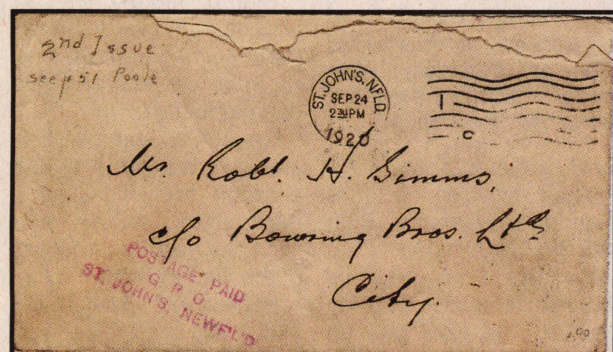 2nd Issue
see p 51 Poole
ST. JOHN'S, NFLD.
SEP 24
2 30 PM
1920
1
c
Mr. Robt. H. Simms,
c/o Bowring Bros. Ltd.
City.
POSTAGE PAID
G P O
ST. JOHN'S, NEWF'L'D